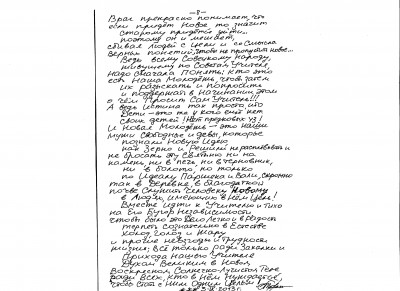 — 8 —
Враг прекрасно понимает, что
если придёт Новое то значит
старому придётся уйти...
поэтому он и мешает,
сбивая людей с цели и со смысла
Верных понятий, чтобы не пропустить новое...
Ведь всему Советскому народу,
живущему по Советам Учителя,
Надо сначала Понять: кто это
есть Наша Молодёжь, чтобы затем
их разыскать и попросить
и поддержать в Начинании этом
о чём Просит Сам Учитель!!!
А ведь истина так проста что
Дети — это те у кого ещё нет
своих детей! Нет предковых уз!
И Новая Молодёжь — это наши
Мужи свободные и девы, которые
познали Новую Идею
как Зерно и Решили не расплёскивать и
не бросать эту Святыню ни на
камень, ни в печь, ни в терновник,
ни в болото, но только
по Идеалу Паршека и Воли, скромно
так в Деревне, в благодатной
почве служить Человеку Новому
в Людях, имеющих в Нём Цель!
Вместе идти к Учителю и тихо
на Его Бугор Независимости
чтобы было это Дело легко и в радость
терпеть сознательно в Естестве
холод, голод и жару
и прочие невзгоды и трудности
жизни; Всё только ради Закалки и
Прихода Нашего Учителя
Духом Великим в Новых
Воскресном Солнеско-Лучистом Теле
ради всех, кто в Нём нуждается,
чтобы быть с Ним Одним Целым!
2013 г.